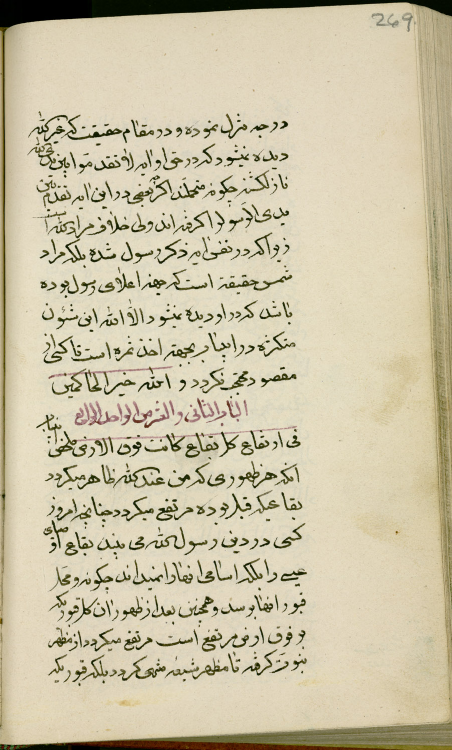 269
درجه تنزل نموده و در مقام حقیقت که غیر الله
دیده نمیشود که در حق او ایه لا تقدموا بین یدی الله
نازل گشته چگونه
یدی الرسول ذکر فرموده اند ولی خلاف مراد الله است
زیرا که در نفس ایه ذکر رسول شده بلکه مراد
شمس حقیقة است که جهة اعلای رسول بوده
باشد که در او دیده نمیشود الا الله این شئون
متکثره در ابنیاء بجهة اخذ ثمره است تا کسی از
مقصود محتجب نگردد و الله خیر الحاکمین
الباب الثانی و العشر من الواحد الرابع
فی ارتفاع کل بقاع کانت فوق الارض ملخص این باب
انکه هر ظهوری که من عند الله ظاهر میگردد
بقاعیکه قبل بوده مرتفع میگردد چنانچه امروز
کسی در دین رسول الله نمی بیند بقاع اوصیای
عیسی را بلکه اسامی انها را نمیدانند چگونه و محل
قبور انها برسد و همچنین بعد از ظهور ان کل قبوریکه
بر فوق ارض مرتفع است مرتفع میگردد از مظهر
نبوت گرفته تا مظهر شیعه منتهی گردد بلکه قبوریکه